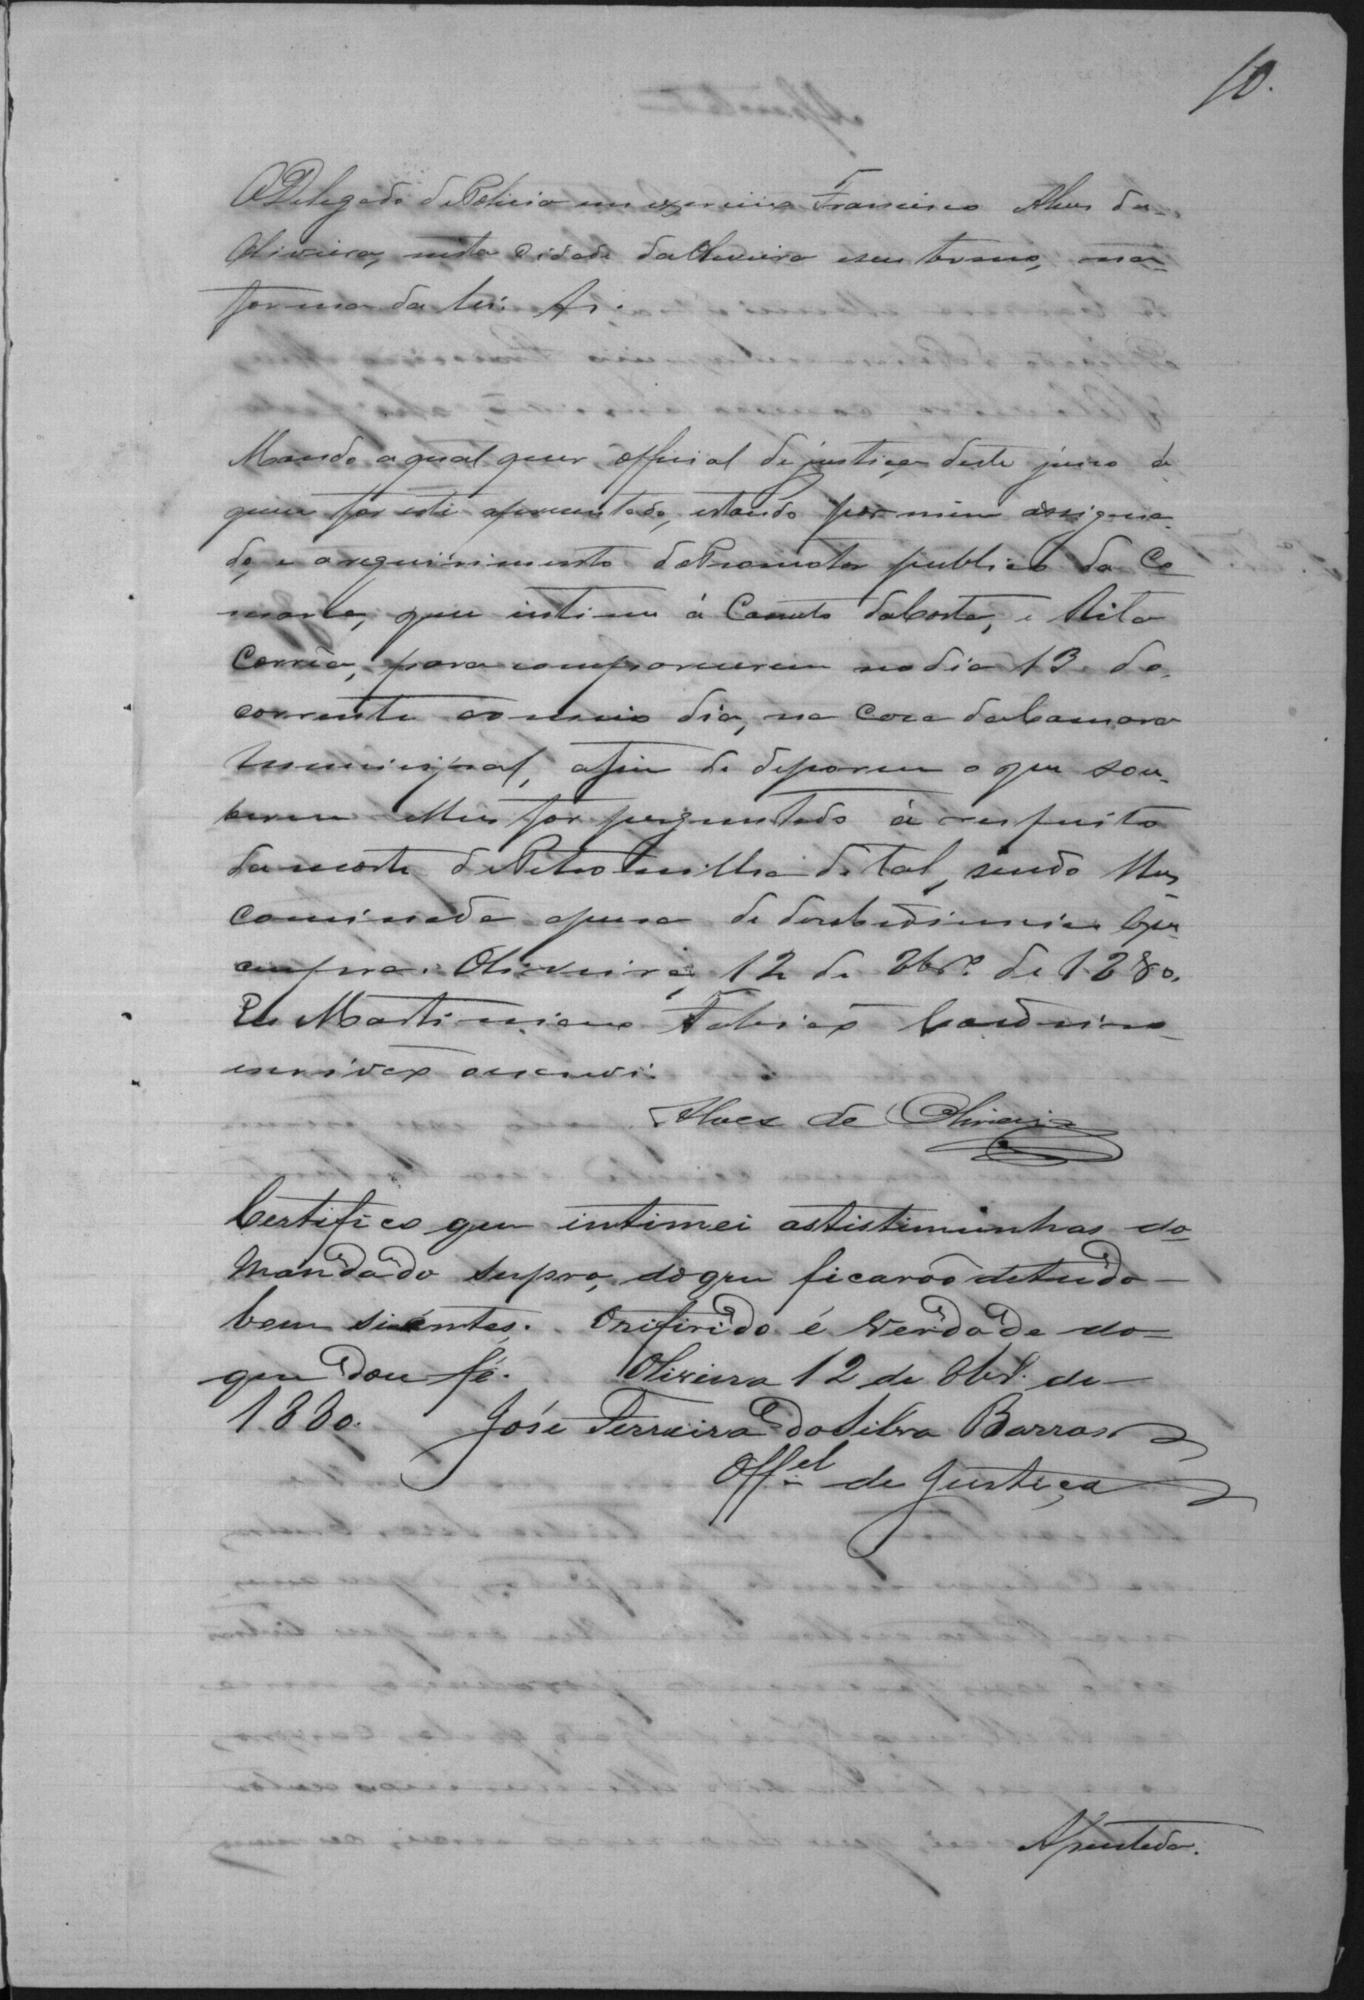 10.
O Delegado de Policia em exercicio Francisco Alves de
Oliveira, nesta Cidade da Oliveira e seu termo, na
forma da lei. &.
Mando a qual quer official de justiça deste juiso á
quem for este apresentado, estando por mim assigna-
do, e a requirimento do Promotor publico da Co
marca, que intime á Canuto da Costa, e Rita
Corrêa, para comparecerem no dia 13 do
corrente ao meio dia, na casa da Camara
Municipal, afim de deporem o que sou-
berem e lhes for perguntado á respeito
da morte de Petromilha de tal, sendo lhes
cominada a pena de desobediencia. Que
cumpra. Oliveira, 12 de 8br.º de 1880.
Eu Martiniano Tobias
escrivão o escrevi.
Alves de Oliveira
Certifico que intimei as tistimunhas do
Mandado supra, do que ficarão de tudo
bem siéntes. O rifirido é verdade do
que dou fé. Oliveira 12 de 8br. de
1880. José Ferreira da Silva Barros
Off.el de Justiça
Apentada.